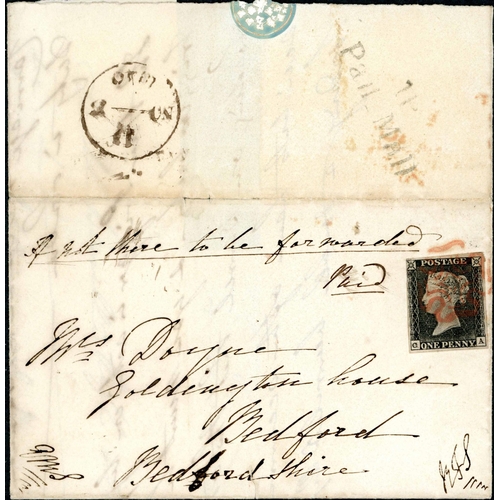 T.P
Pall Mall
If not there to be forwarded
Paid
POSTAGE
ONE PENNY
Mrs Doyne
Goldington house
Bedford
Bedfordshire